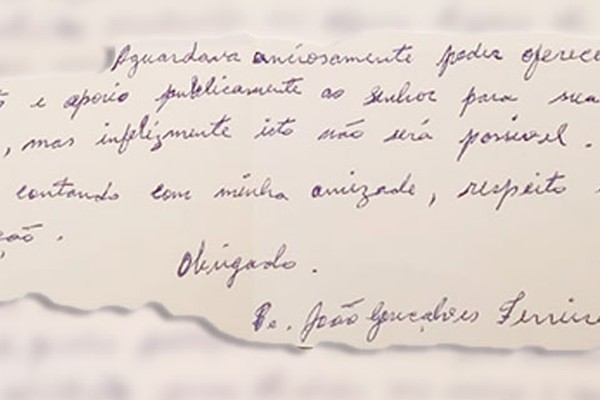 Aguardava anciosamente poder oferece
s e apoio publicamente ao senhor para sua
, mas infelizmente isto não será possível.
contando com minha amizade, respeito
ção.
Obrigado.
Pe. João Gonçalves Ferreir